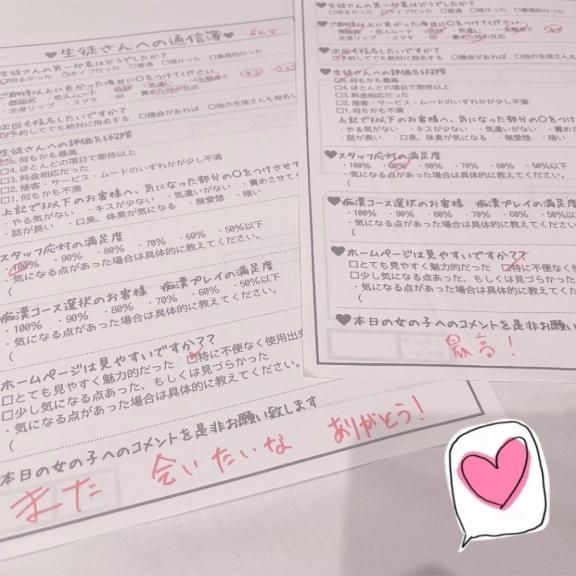 ♥生徒さんへの通信簿♥
生徒さんの第一印象はどうでしたか?
□明るかった □タイプだった □普通 □暗かった □事務的だった
次回も指名したいですか?
□予約してでも絶対に指名する □機会があれば □他の生徒も指名し
生徒さんへの評価を5段階
□5. 何もかも最高
□4. ほとんどの項目で期待以上
□3. 料金相応だった
□2. 接客・サービス・ムードのいずれかが少し不満
□1. 何もかも不満
上記で3以下のお客様へ、気になった部分の〇をつけさせて
・やる気がない ・キスが少ない ・気遣いがない ・責めさせて
・話が長い ・口臭、体臭が気になる ・無愛想 ・暗い
スタッフ応対の満足度
・100% ・90% ・80% ・70% ・60% ・50%以下
・気になる点があった場合は具体的に教えてください。
(
痴漢コース選択のお客様 痴漢プレイの満足度
・100% ・90% ・80% ・70% ・60% ・50%以下
・気になる点があった場合は具体的に教えてください。
(
ホームページは見やすいですか??
□とても見やすく魅力的だった □特に不便なく使用出来
□少し気になる点があった、もしくは見づらかった
・気になる点があった場合は具体的に教えてください。
(
本日の女の子へのコメントを是非お願い致します
また 会いたいな ありがとう!
次回も指名したいですか?
□予約してでも絶対に指名する □機会があれば □他の生徒さ
♥生徒さんへの評価を5段階
□5. 何もかも最高
□4. ほとんどの項目で期待以上
□3. 料金相応だった
□2. 接客・サービス・ムードのいずれかが少し不満
□1. 何もかも不満
上記で3以下のお客様へ、気になった部分の〇
・やる気がない ・キスが少ない ・気遣いがない ・責
・話が長い ・口臭、体臭が気になる ・無愛想 ・暗
♥スタッフ応対の満足度
・100% ・90% ・80% ・70% ・60% ・50%以
・気になる点があった場合は具体的に教えてください
♥痴漢コース選択のお客様 痴漢プレイの満足
・100% ・90% ・80% ・70% ・60% ・50%以
・気になる点があった場合は具体的に教えてください
♥ホームページは見やすいですか??
□とても見やすく魅力的だった □特に不便なく
□少し気になる点があった、もしくは見づらかった
・気になる点があった場合は具体的に教えてください
♥本日の女の子へのコメントを是非お願い
最高!